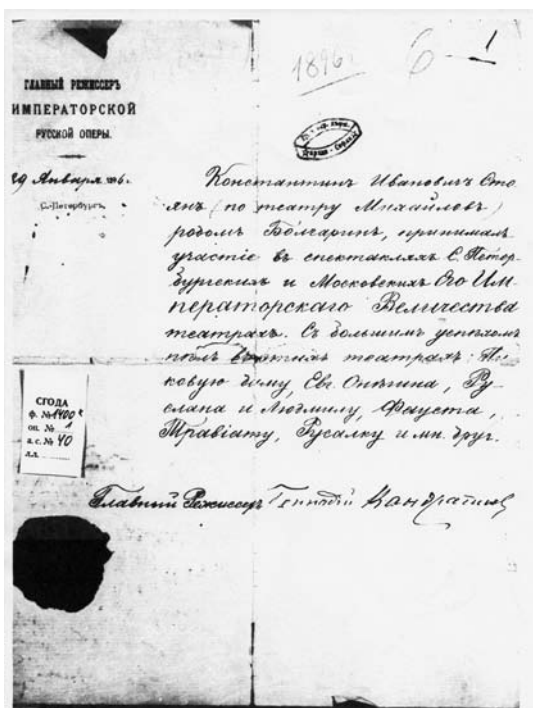 1896.
6
1
ГЛАВНЫЙ РЕЖИССЕРЪ
ИМПЕРАТОРСКОЙ
РУССКОЙ ОПЕРЫ.
29 Января 1896 г.
С.-Петербургъ.
Константинъ Ивановичъ Сто-
янъ (по театру Михайловъ)
родомъ Болгаринъ, принималъ
участіе въ спектакляхъ С. Петер-
бургскихъ и Московскихъ Его Им-
ператорскаго Величества
театрахъ. Съ большимъ успѣхомъ
пѣлъ въ этихъ театрахъ: Пи-
ковую даму, Евг. Онѣгина, Ру-
слана и Людмилу, Фауста,
Травіату, Русалку и мн. друг.
Главный Режиссеръ Геннадій Кондратьевъ
СГОДА
ф. № 1400к
оп. № 1
а.с. № 40
л.л.